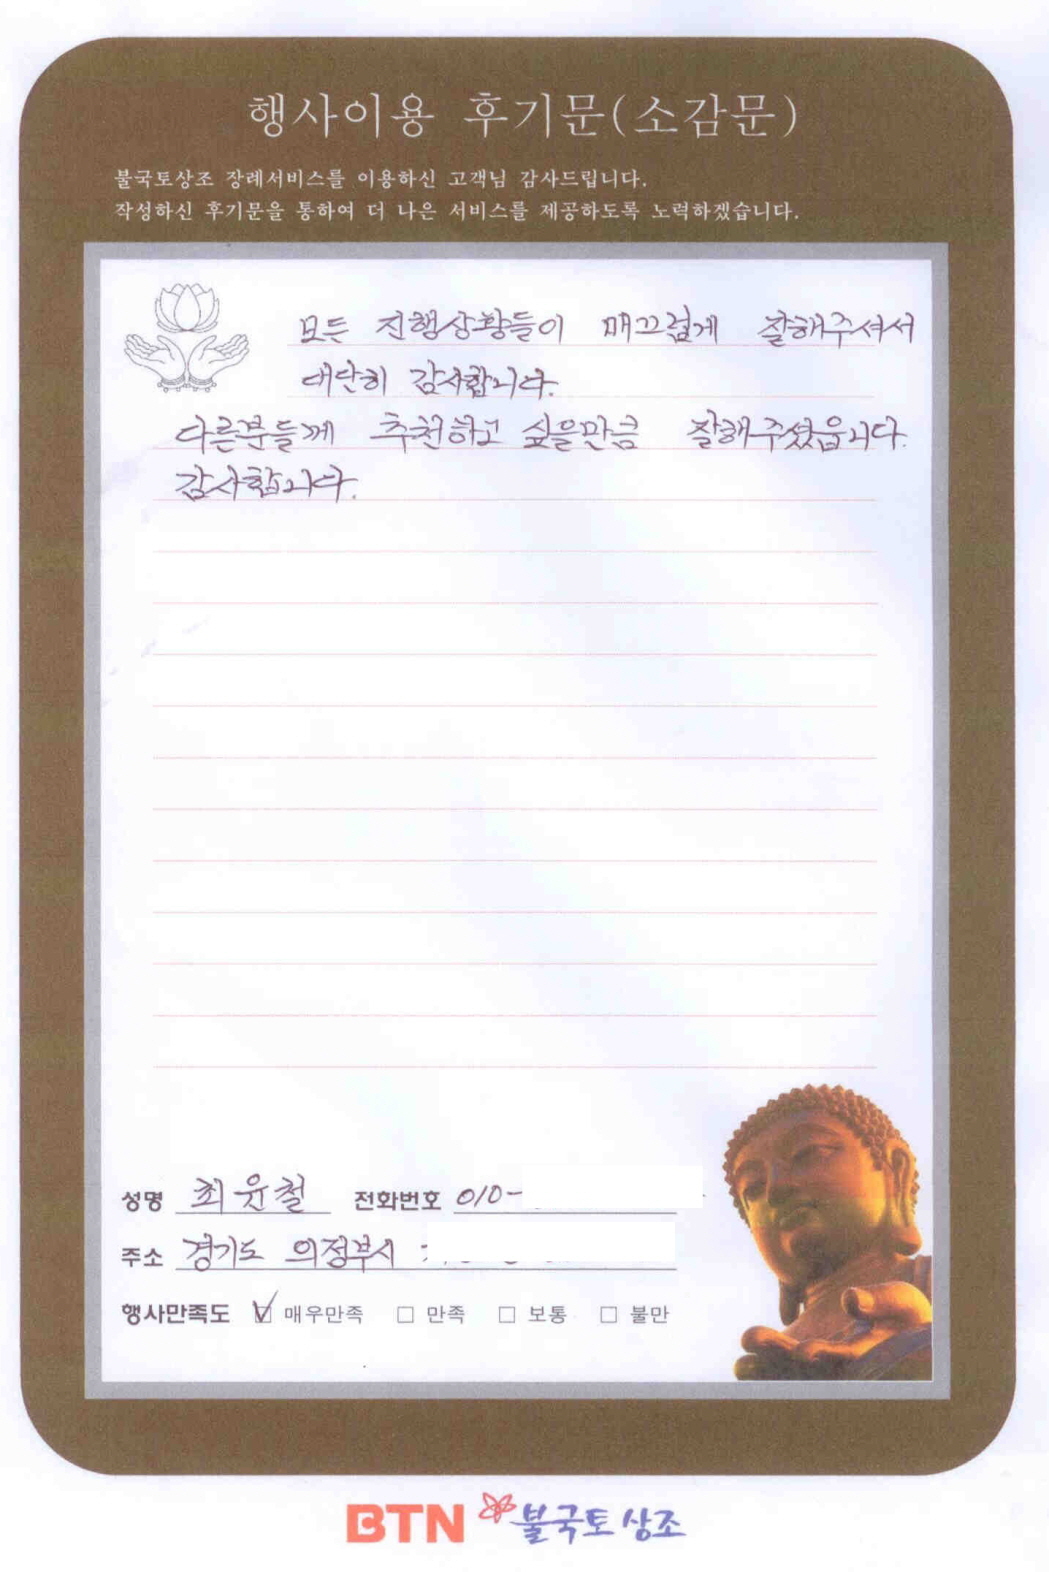 행사이용 후기문(소감문)
불국토상조 장례서비스를 이용하신 고객님 감사드립니다.
작성하신 후기문을 통하여 더 나은 서비스를 제공하도록 노력하겠습니다.
모든 진행상황들이 매끄럽게 잘해주셔서
대단히 감사합니다.
다른분들께 추천하고 싶을만큼 잘해주셨읍니다.
감사합니다.
성명 최윤철 전화번호 010-
주소 경기도 의정부시
행사만족도 ☑ 매우만족 □ 만족 □ 보통 □ 불만
BTN 불국토 상조